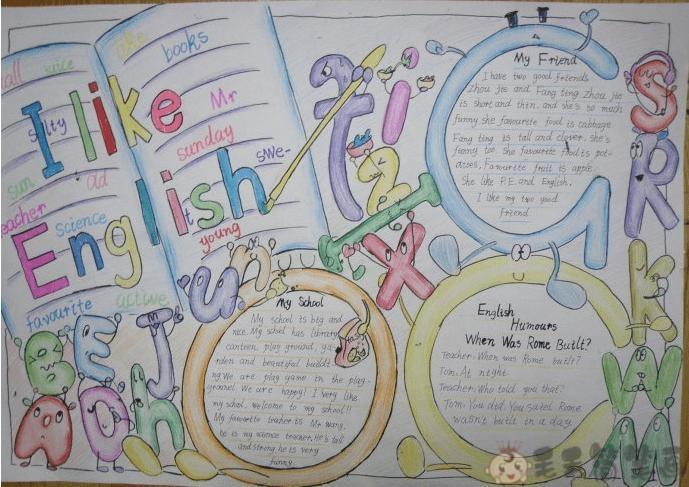 I like
English
like
books
Mr
salty
sunday
sun
old
swe-
teacher
science
it
young
favourite
active
My Friend
I have two good friends
Zhou jie and Fang ting Zhou jie
is short and thin. and she's so much
funny she favourite food is cabbage.
Fang ting is tall and clever. she's
funny too. She favourite food is pot-
atoes, Favourite fruit is apple.
She like P.E. and English.
I like my two good
friend.
My School
My school is big and
nice. My school has library
canteen, play ground, ga-
rden and beautiful buildi
ng We are play game in the play-
ground. We are happy! I very like
my school. welcome to my school!!
My favourite teacher is Mr Wang,
he is my science teacher. He's tall
and strong, he is very
funny.
English
Humours
When Was Rome Built?
Teacher: When was Rome built?
Tom: At night.
Teacher: Who told you that?
Tom: You did. You saied Rome
wasn't built in a day.
u n
B E J
A O h
t i z
I X
a
S R K W M